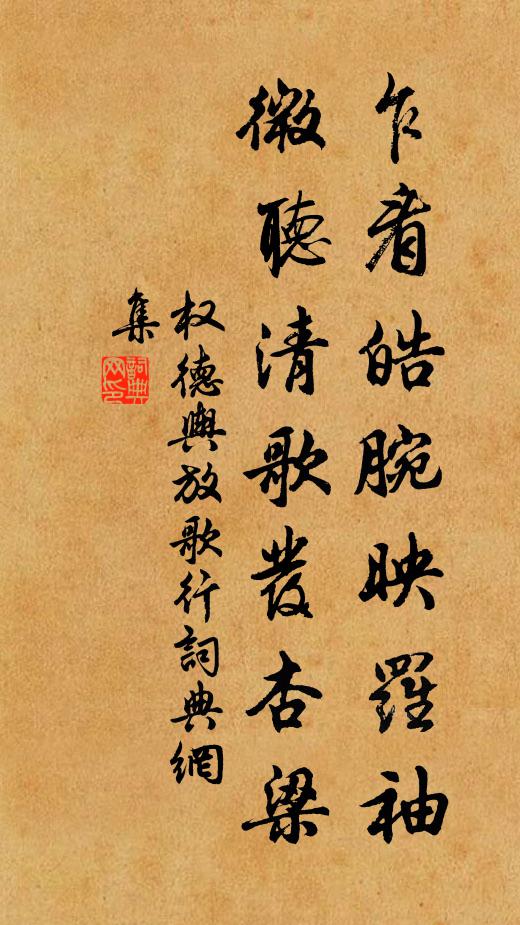 乍看皓腕映羅袖
微聽清歌發杏梁
权德輿放歌行詞典網
集
詞典
网印